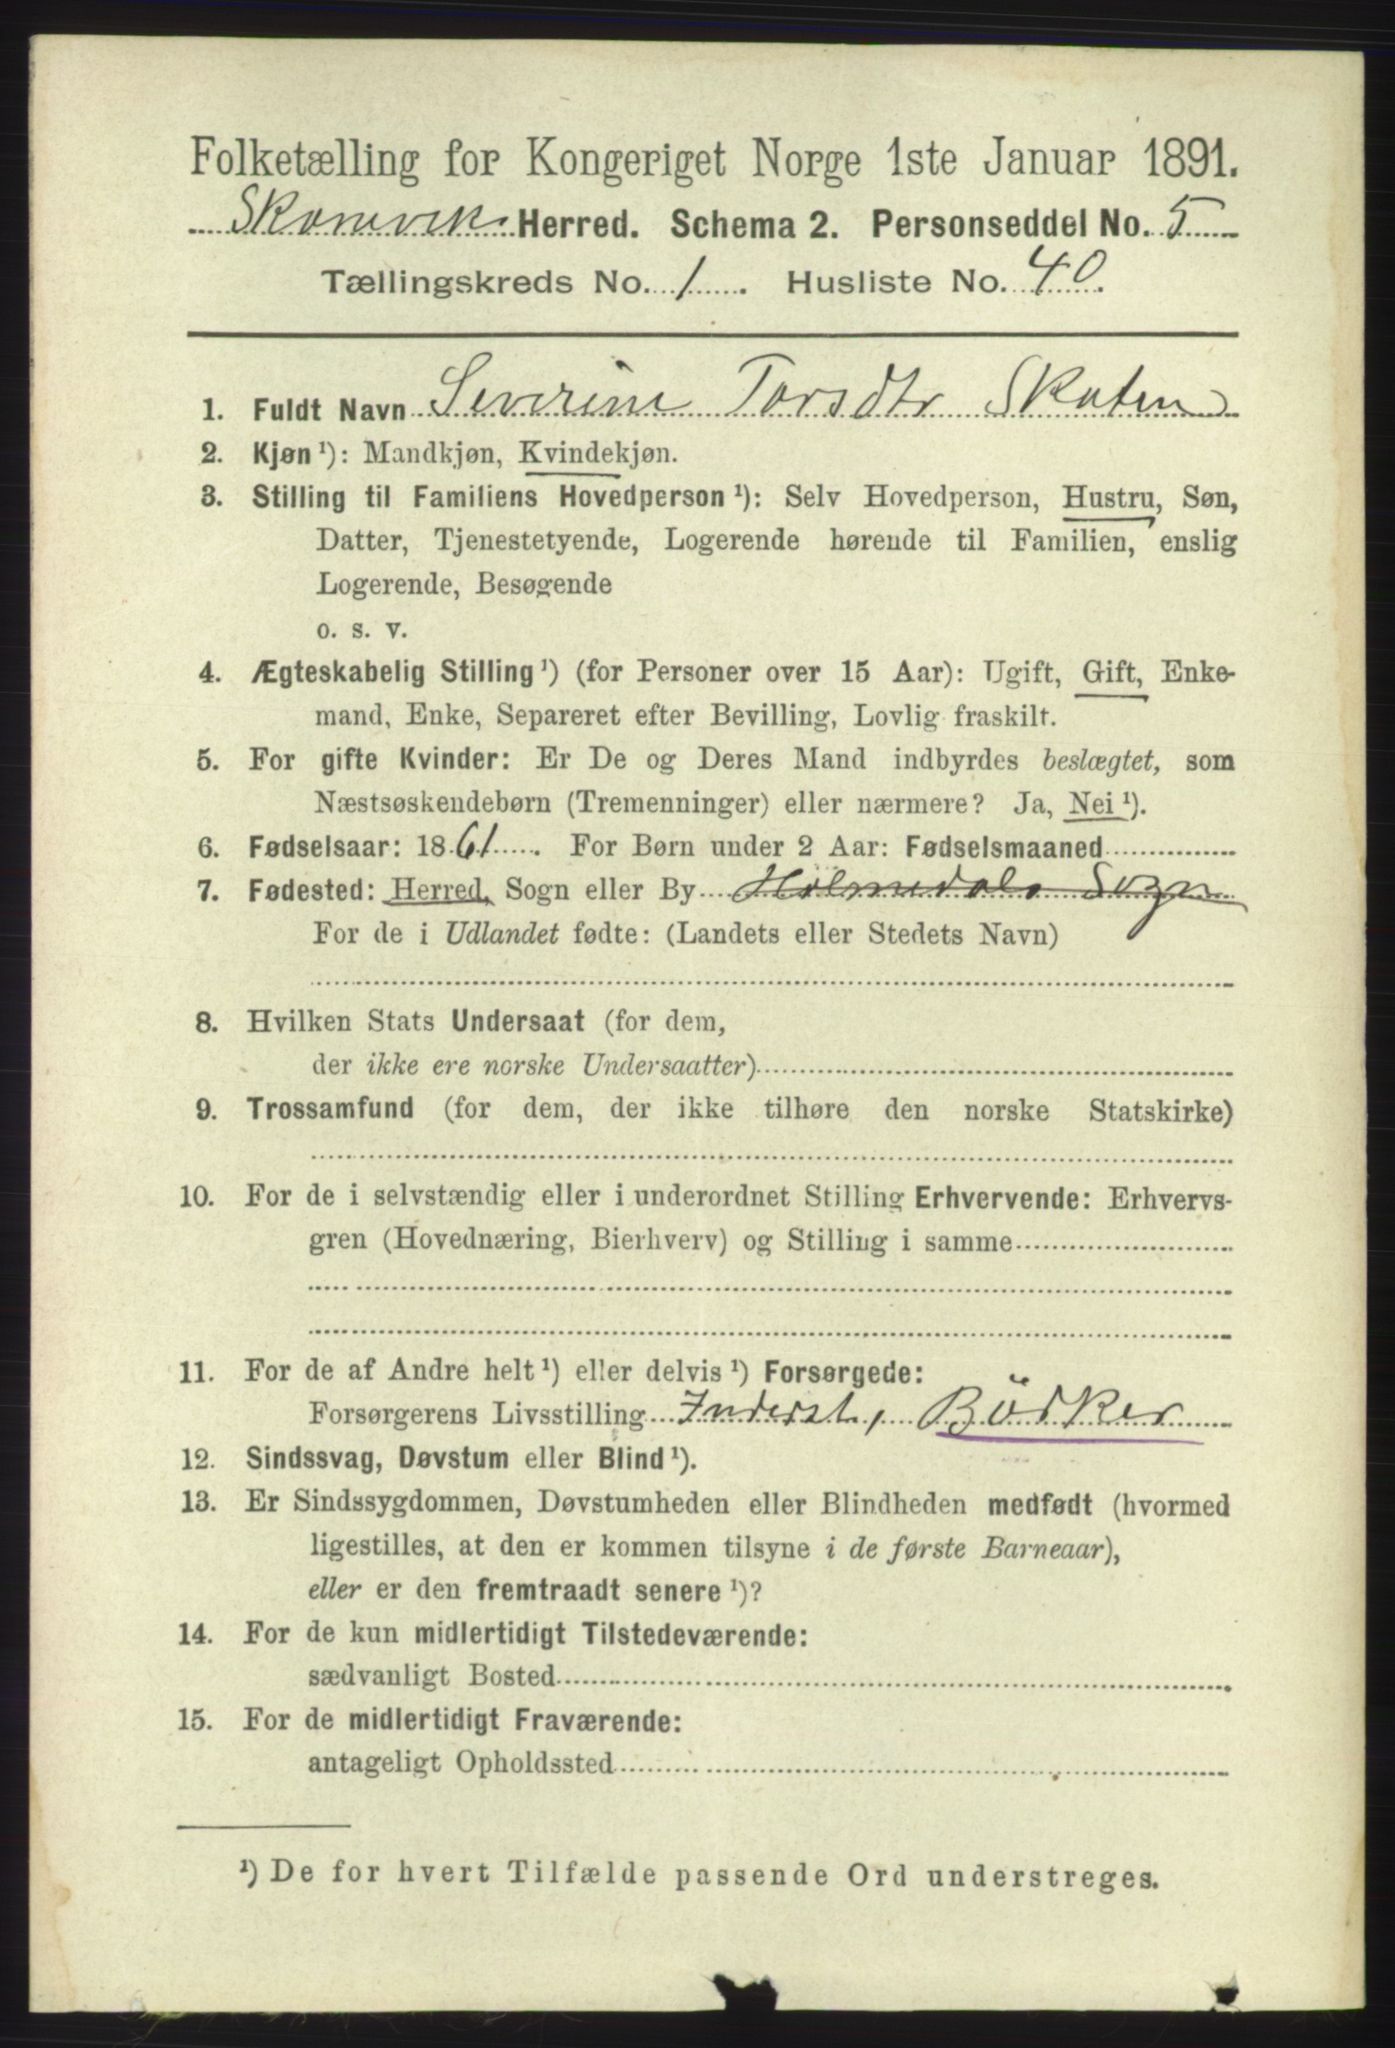 Folketælling for Kongeriget Norge 1ste Januar 1891.
Skonevik Herred. Schema 2. Personseddel No. 5
Tællingskreds No. 1. Husliste No. 40.
1. Fuldt Navn Severine Torsdtr Skaten
2. Kjøn ¹): Mandkjøn, Kvindekjøn.
3. Stilling til Familiens Hovedperson ¹): Selv Hovedperson, Hustru, Søn,
Datter, Tjenestetyende, Logerende hørende til Familien, enslig
Logerende, Besøgende
o. s. v.
4. Ægteskabelig Stilling ¹) (for Personer over 15 Aar): Ugift, Gift, Enke-
mand, Enke, Separeret efter Bevilling, Lovlig fraskilt.
5. For gifte Kvinder: Er De og Deres Mand indbyrdes beslægtet, som
Næstsøskendebørn (Tremenninger) eller nærmere? Ja, Nei ¹).
6. Fødselsaar: 1861. For Børn under 2 Aar: Fødselsmaaned
7. Fødested: Herred, Sogn eller By Holmedals Sogn
For de i Udlandet fødte: (Landets eller Stedets Navn)
8. Hvilken Stats Undersaat (for dem,
der ikke ere norske Undersaatter)
9. Trossamfund (for dem, der ikke tilhøre den norske Statskirke)
10. For de i selvstændig eller i underordnet Stilling Erhvervende: Erhvervs-
gren (Hovednæring, Bierhverv) og Stilling i samme
11. For de af Andre helt ¹) eller delvis ¹) Forsørgede:
Forsørgerens Livsstilling Inderst, Bödker
12. Sindssvag, Døvstum eller Blind ¹).
13. Er Sindssygdommen, Døvstumheden eller Blindheden medfødt (hvormed
ligestilles, at den er kommen tilsyne i de første Barneaar),
eller er den fremtraadt senere ¹)?
14. For de kun midlertidigt Tilstedeværende:
sædvanligt Bosted
15. For de midlertidigt Fraværende:
antageligt Opholdssted
¹) De for hvert Tilfælde passende Ord understreges.